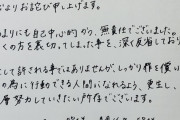 よりお詫び申し上げます。
まりにも自己中心的かつ、無責任でございました。
くの方を裏切ってしまった事を、深く反省しており
して許される事ではありませんが、しっかり罪を償い
の為に行動できる人間になれるよう、更生し、
層努力していきたい所存でございます。